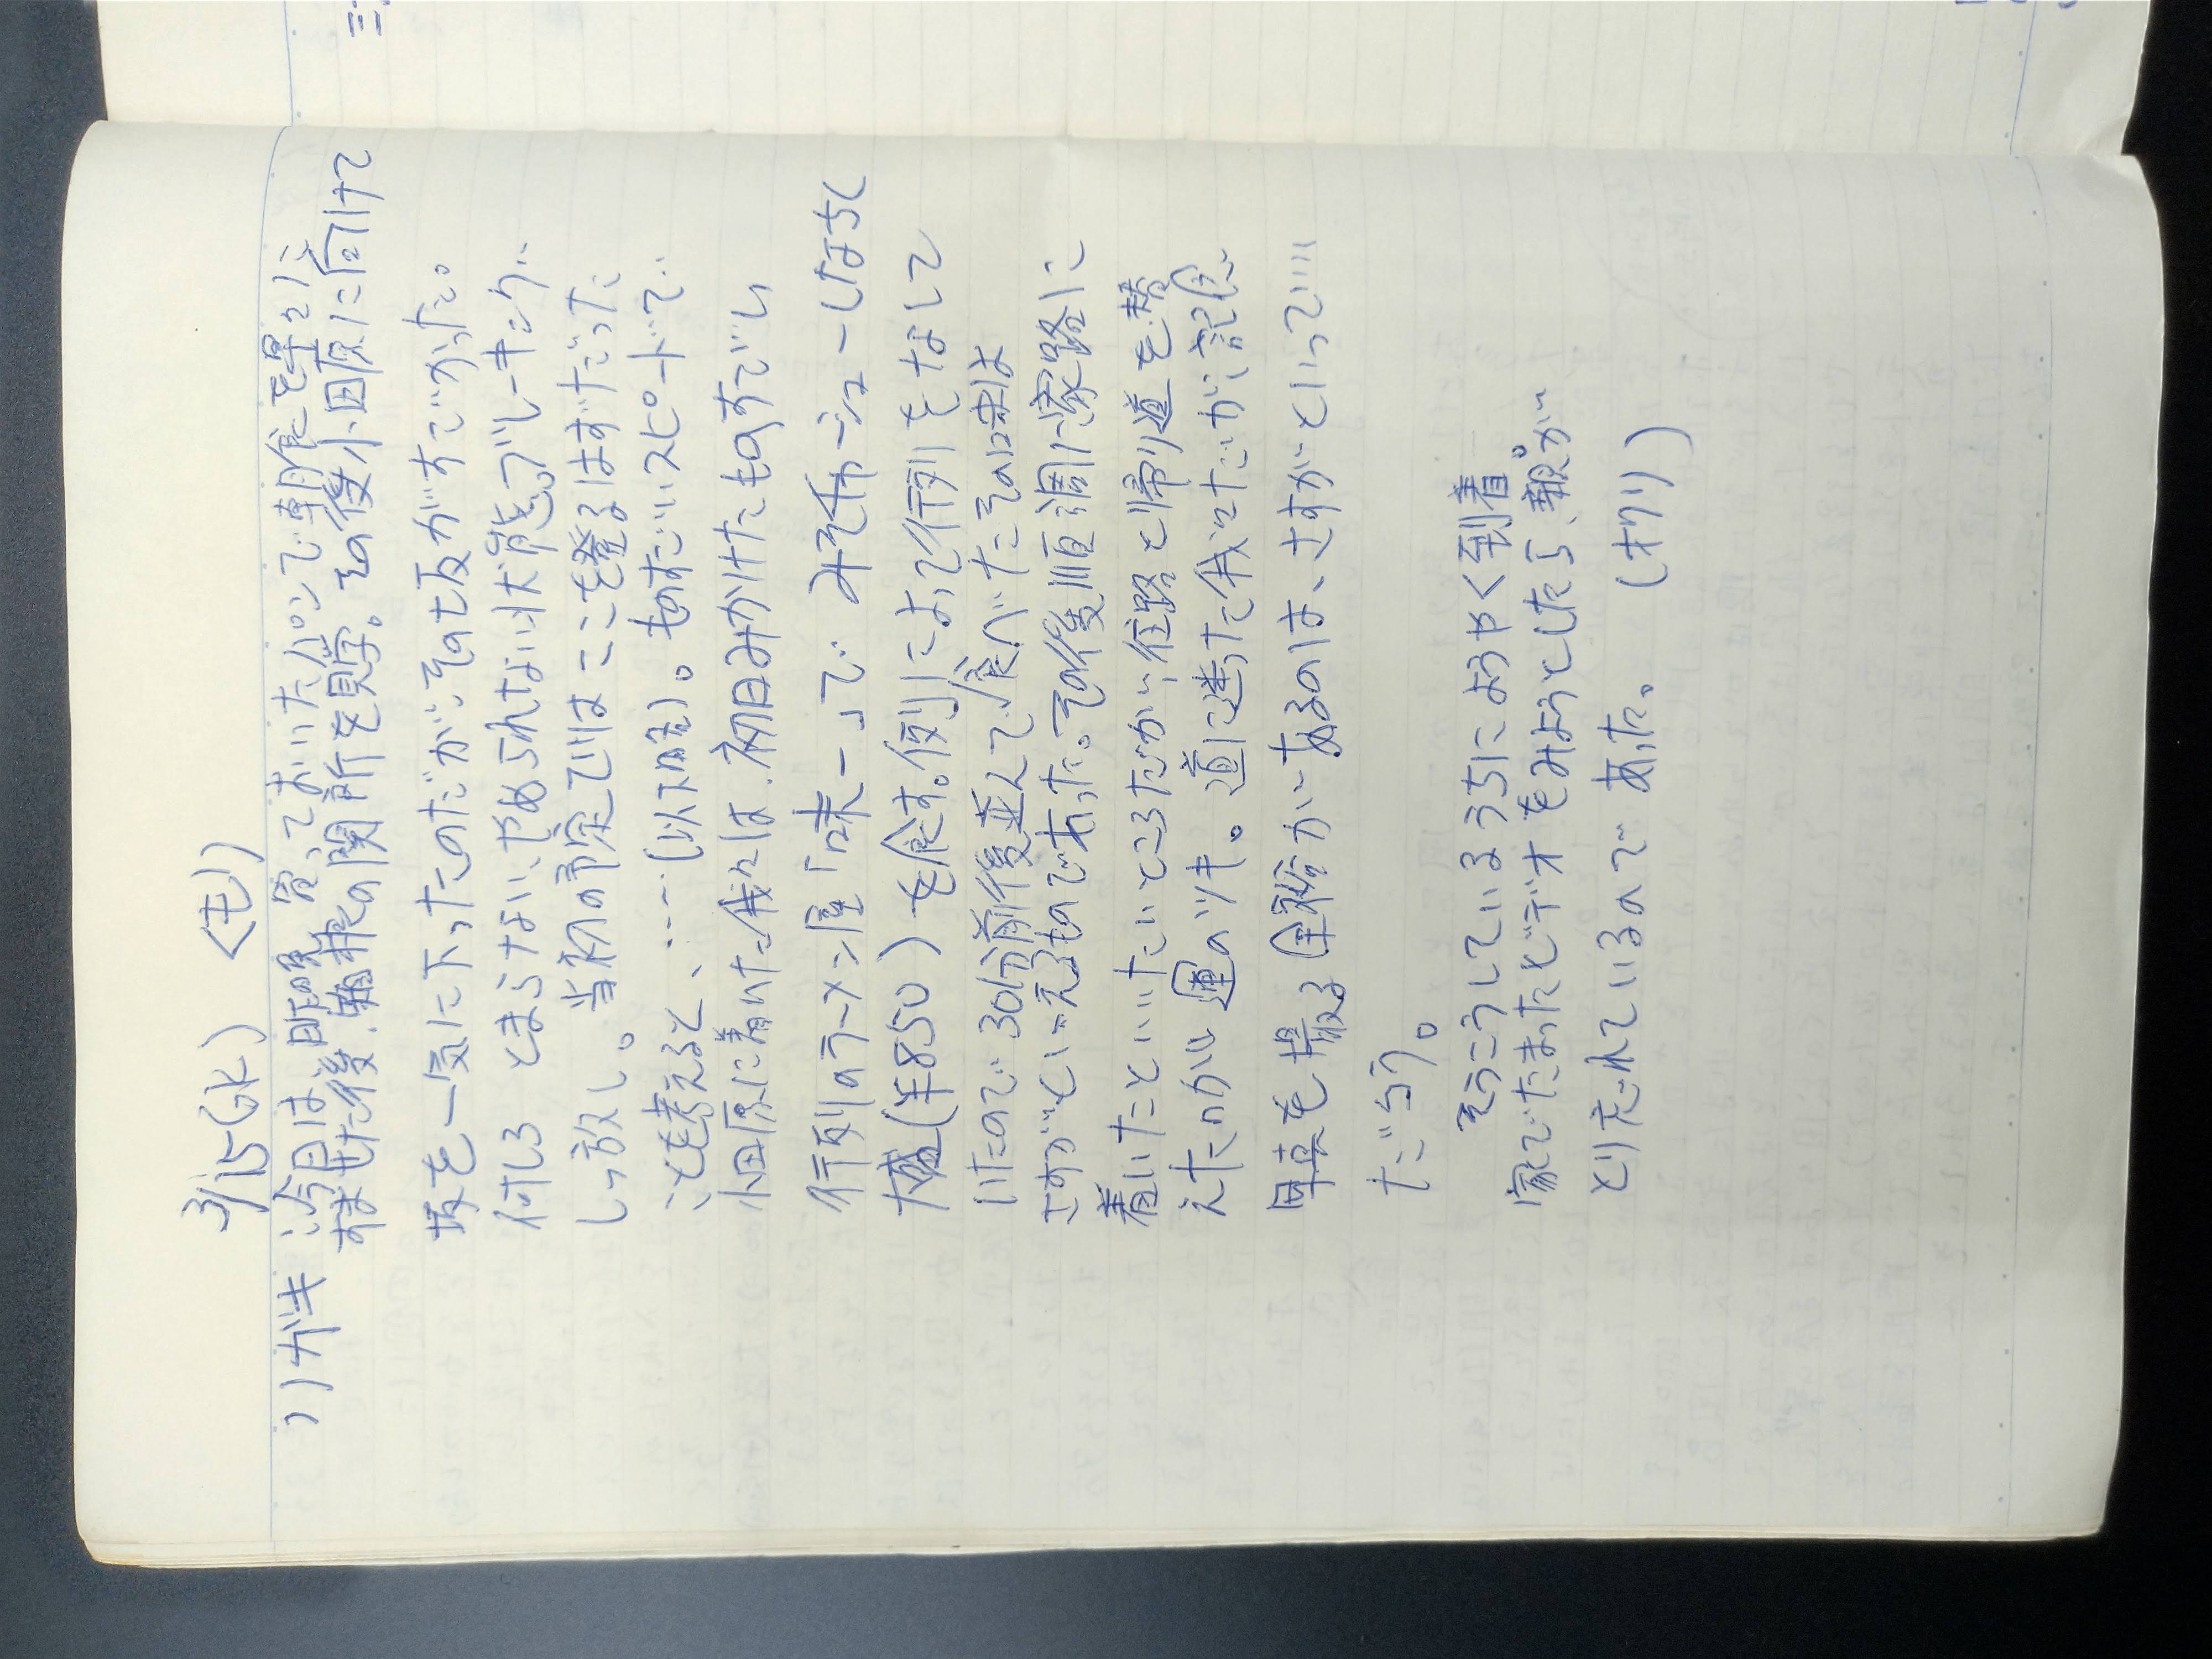 3/15(水) <モ>
ハナガキ 今日は即席、買っておいたパンで朝食を早々に
すませた後、箱根の関所を見学。その後小田原に向けて
坂を一気に下ったのだがその坂がすごかった。
何しろ とまらない、やめられない状態でブレーキング
しっ放し。当初の予定ではここを登るはずだった
ことを考えると、……(以下略)。ものすごいスピードで
小田原に着いた我々は、初日みかけたものすごい
行列のラーメン屋「味一」で みそチャーシューしなちく
大盛(¥850)を食す。例によって行列をなして
いたので 30分前後並んで食べたその味は
さすがといえるものであった。その後順調に家路に
着いたといいたいところだが、往路と帰り道を替
えたのが運のツキ。道に迷った我々だが、記念
写真を撮る余裕があるのは、さすがといっていい
だろう。
そうこうしているうちにようやく到着。
家でたまったビデオをみようとしたら、親が
とりだれているので あった。 (オワリ)